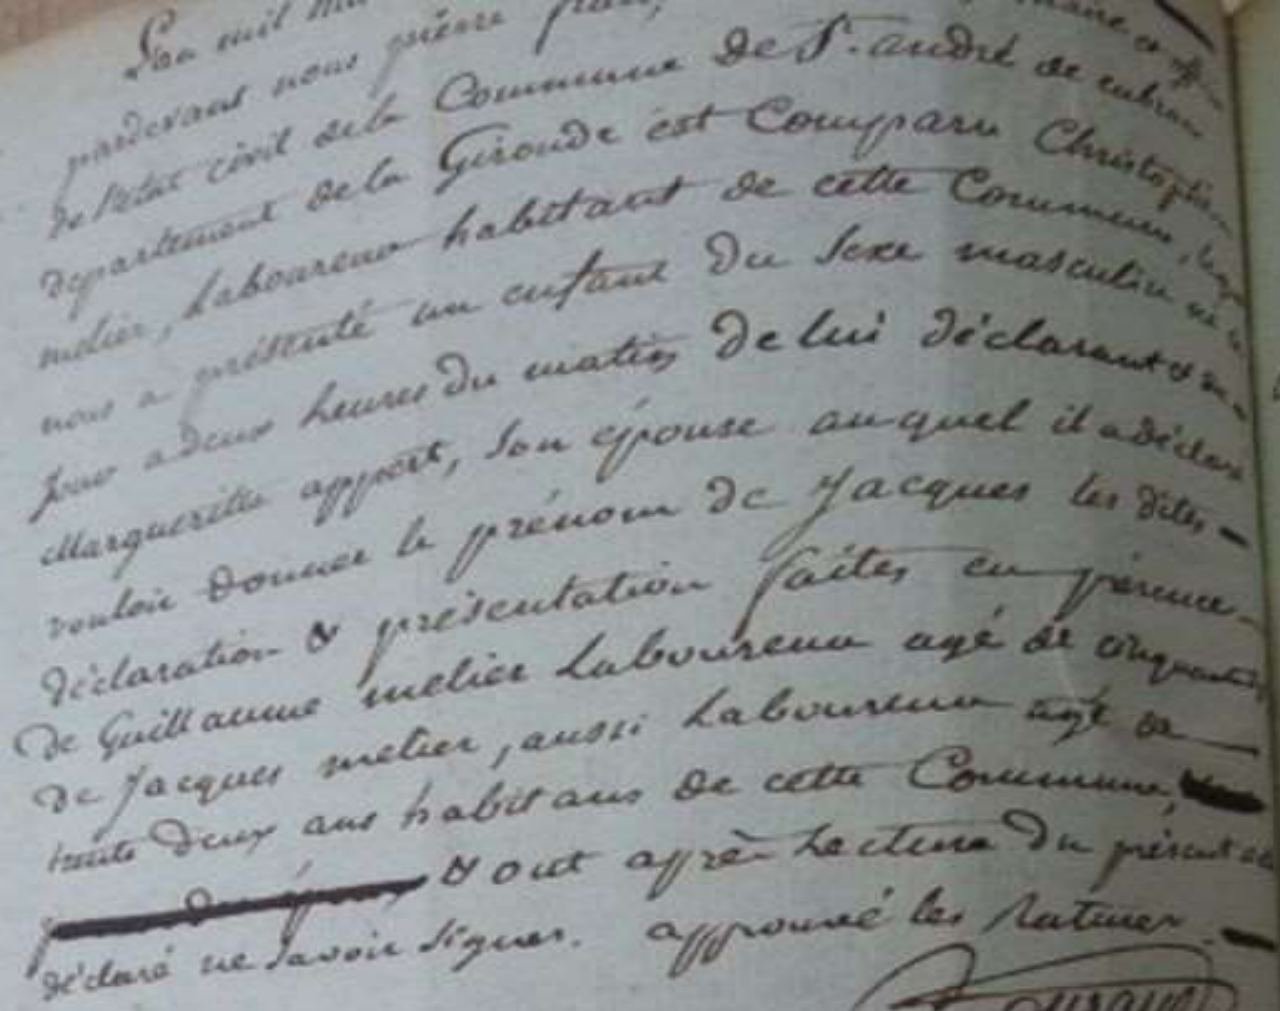 L'an mil
pardevant nous pierre
de l'état civil de la Commune de St. andré de cubzac
département de la Gironde est Comparu Christophe
melier, Laboureur habitant de cette Commune,
nous a présenté un enfant du Sexe masculin né
jour a deux heures du matin de lui déclarant & de
Margueritte appert, Son épouse auquel il a déclaré
vouloir donner le prénom de Jacques les dites
déclaration & présentation faites en présence
de Guillaume melier Laboureur agé de cinquante
de Jacques melier, aussi Laboureur agé de
trente deux ans habitans de cette Commune,
& ont après Lecture du présent
déclaré ne Savoir Signer. approuvé les ratures